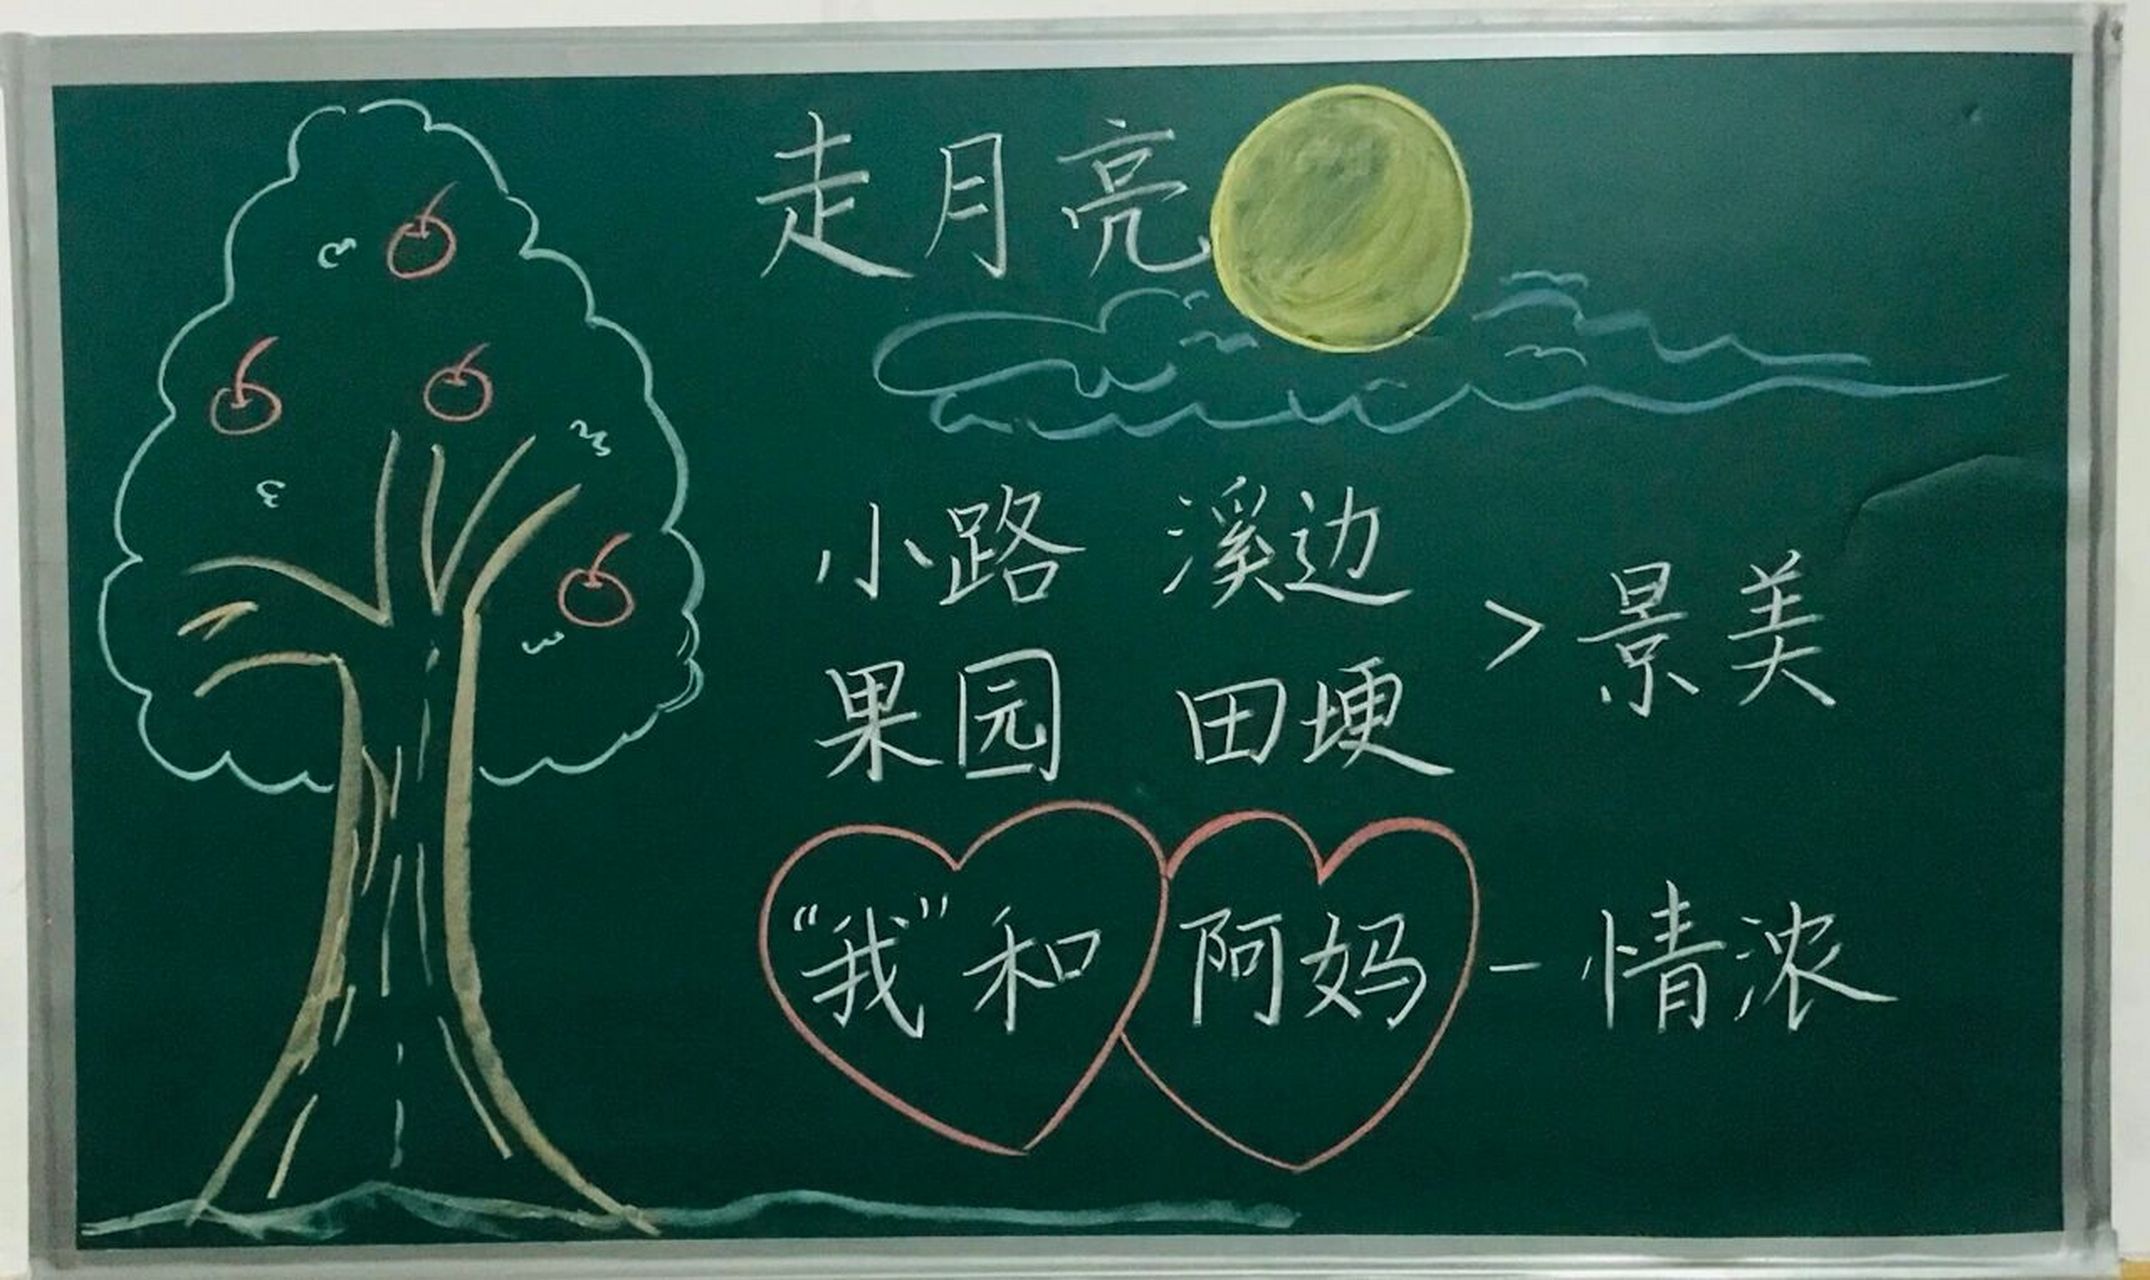 走月亮
小路 溪边
果园 田埂
> 景美
“我”和 阿妈 - 情浓